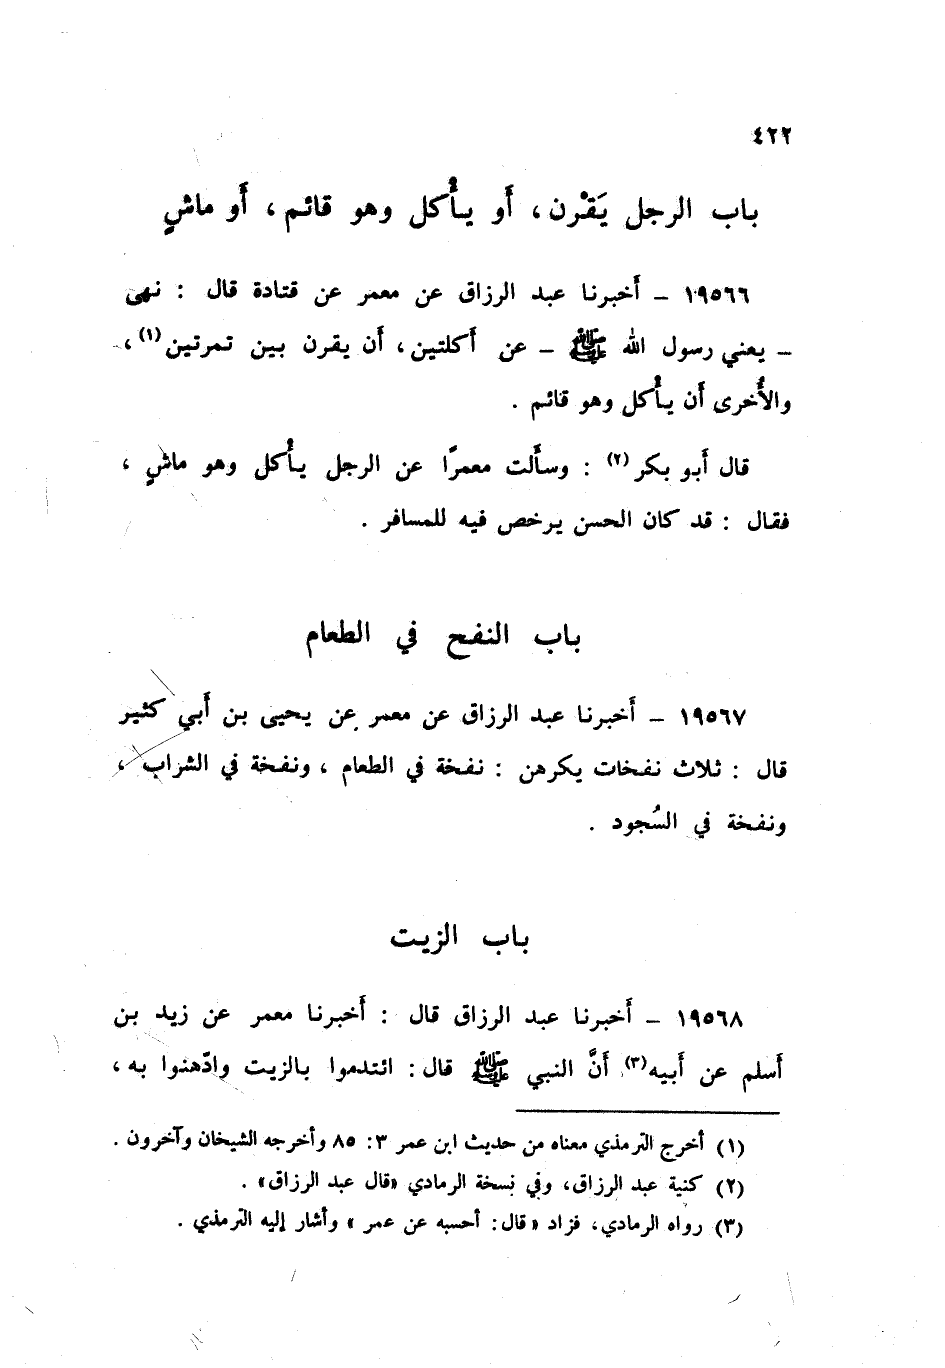 ٤٢٢
باب الرجل يَقْرن ، أَو يأْكل وهو قائم ، أَو ماشٍ
١٩٥٦٦ – أَخبرنا عبد الرزاق عن معمر عن قتادة قال : نهى
– يعني رسول الله ﷺ – عن أَكلتين ، أَن يقرن بين تمرتين (١) ،
والأُخرى أَن يأْكل وهو قائم .
قال أَبو بكر (٢) : وسأَلت معمرًا عن الرجل يأْكل وهو ماشٍ ،
فقال : قد كان الحسن يرخص فيه للمسافر .
باب النفح في الطعام
١٩٥٦٧ – أَخبرنا عبد الرزاق عن معمر عن يحيى بن أَبي كثير
قال : ثلاث نفخات يكرهن : نفخة في الطعام ، ونفخة في الشراب ،
ونفخة في السُجود .
باب الزيت
١٩٥٦٨ – أَخبرنا عبد الرزاق قال : أَخبرنا معمر عن زيد بن
أَسلم عن أَبيه (٣) أَنَّ النبي ﷺ قال : ائتدموا بالزيت وادّهنوا به ،
(١) أخرج الترمذي معناه من حديث ابن عمر ٣ : ٨٥ وأخرجه الشيخان وآخرون .
(٢) كنية عبد الرزاق ، وفي نسخة الرمادي «قال عبد الرزاق» .
(٣) رواه الرمادي ، فزاد « قال : أحسبه عن عمر » وأشار إليه الترمذي .